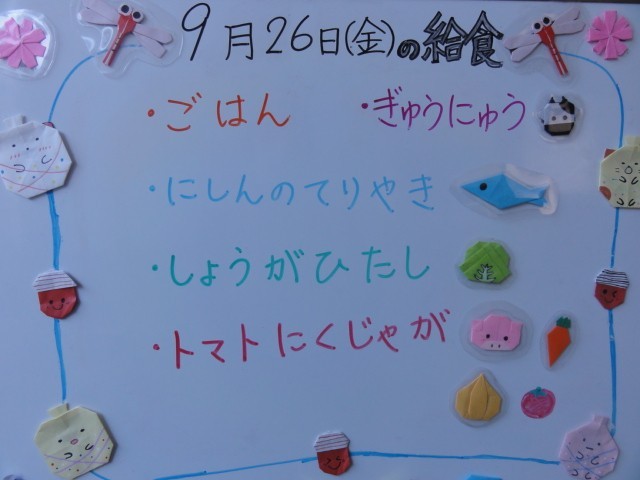 9月26日(金)の給食
・ごはん ・ぎゅうにゅう
・にしんのてりやき
・しょうがひたし
・トマトにくじゃが